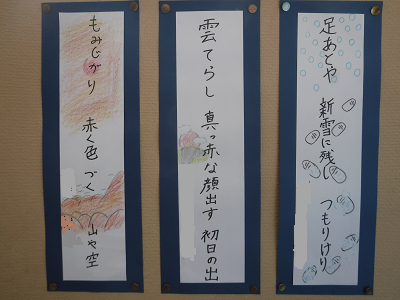 足あとや 新雪に残し つもりけり
雲てらし 真っ赤な顔出す 初日の出
もみじがり 赤く色づく 山や空